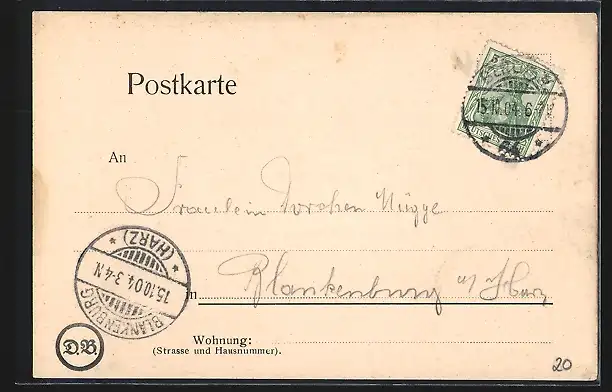 Postkarte
15.10.04.6-
An
Fräulein Dorchen Nügge
BLANKENBURG
(HARZ)
15.10.04.3-4N
in Blankenburg a/ Harz
Wohnung:
(Strasse und Hausnummer).
D.B.
20